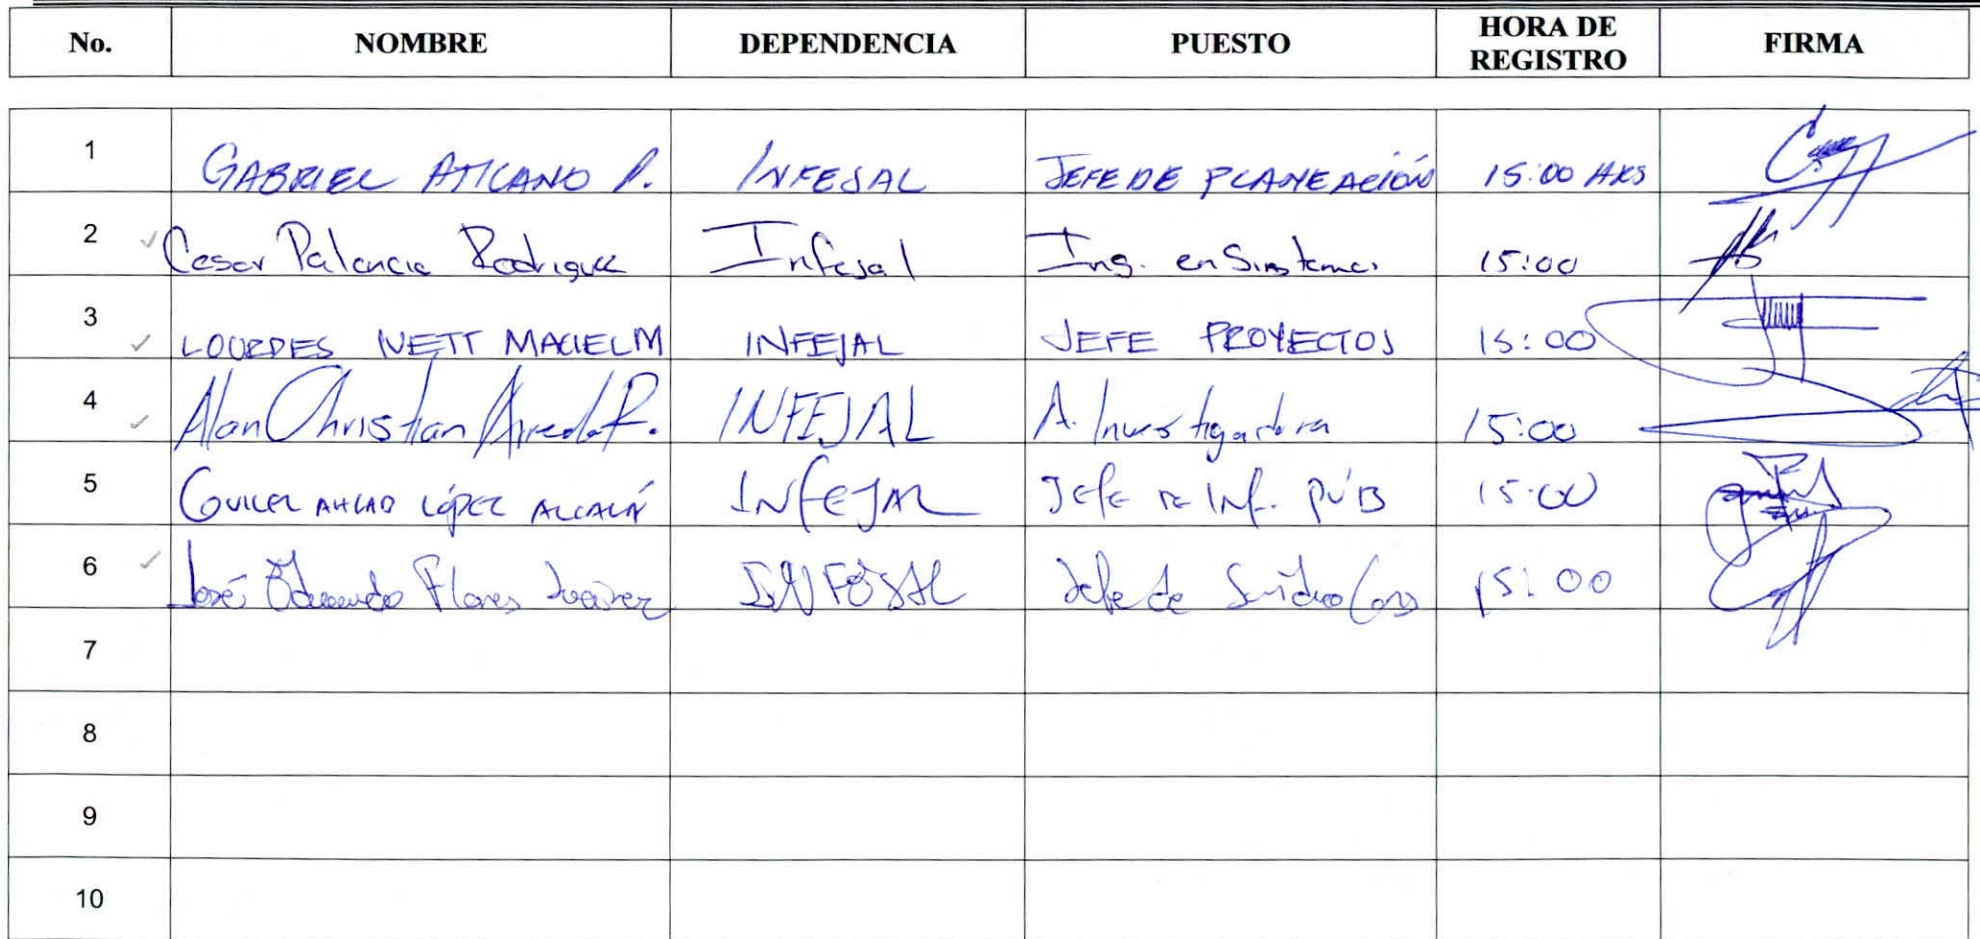 No. NOMBRE DEPENDENCIA PUESTO HORA DE REGISTRO FIRMA
1 GABRIEL P. INFEJAL JEFE DE PLANEACIÓN 15:00 HRS
2 Cesar Palencia Rodriguez Infejal Ing. en Sistemas 15:00
3 LOURDES IVETT MACIEL M INFEJAL JEFE PROYECTOS 15:00
4 Alan Christian INFEJAL A. Investigadora 15:00
5 LÓPEZ ALCALÁ INFEJAL Jefe de Inf. PÚB 15:00
6 José Eduardo Flores INFEJAL Jefe de 15:00
7
8
9
10